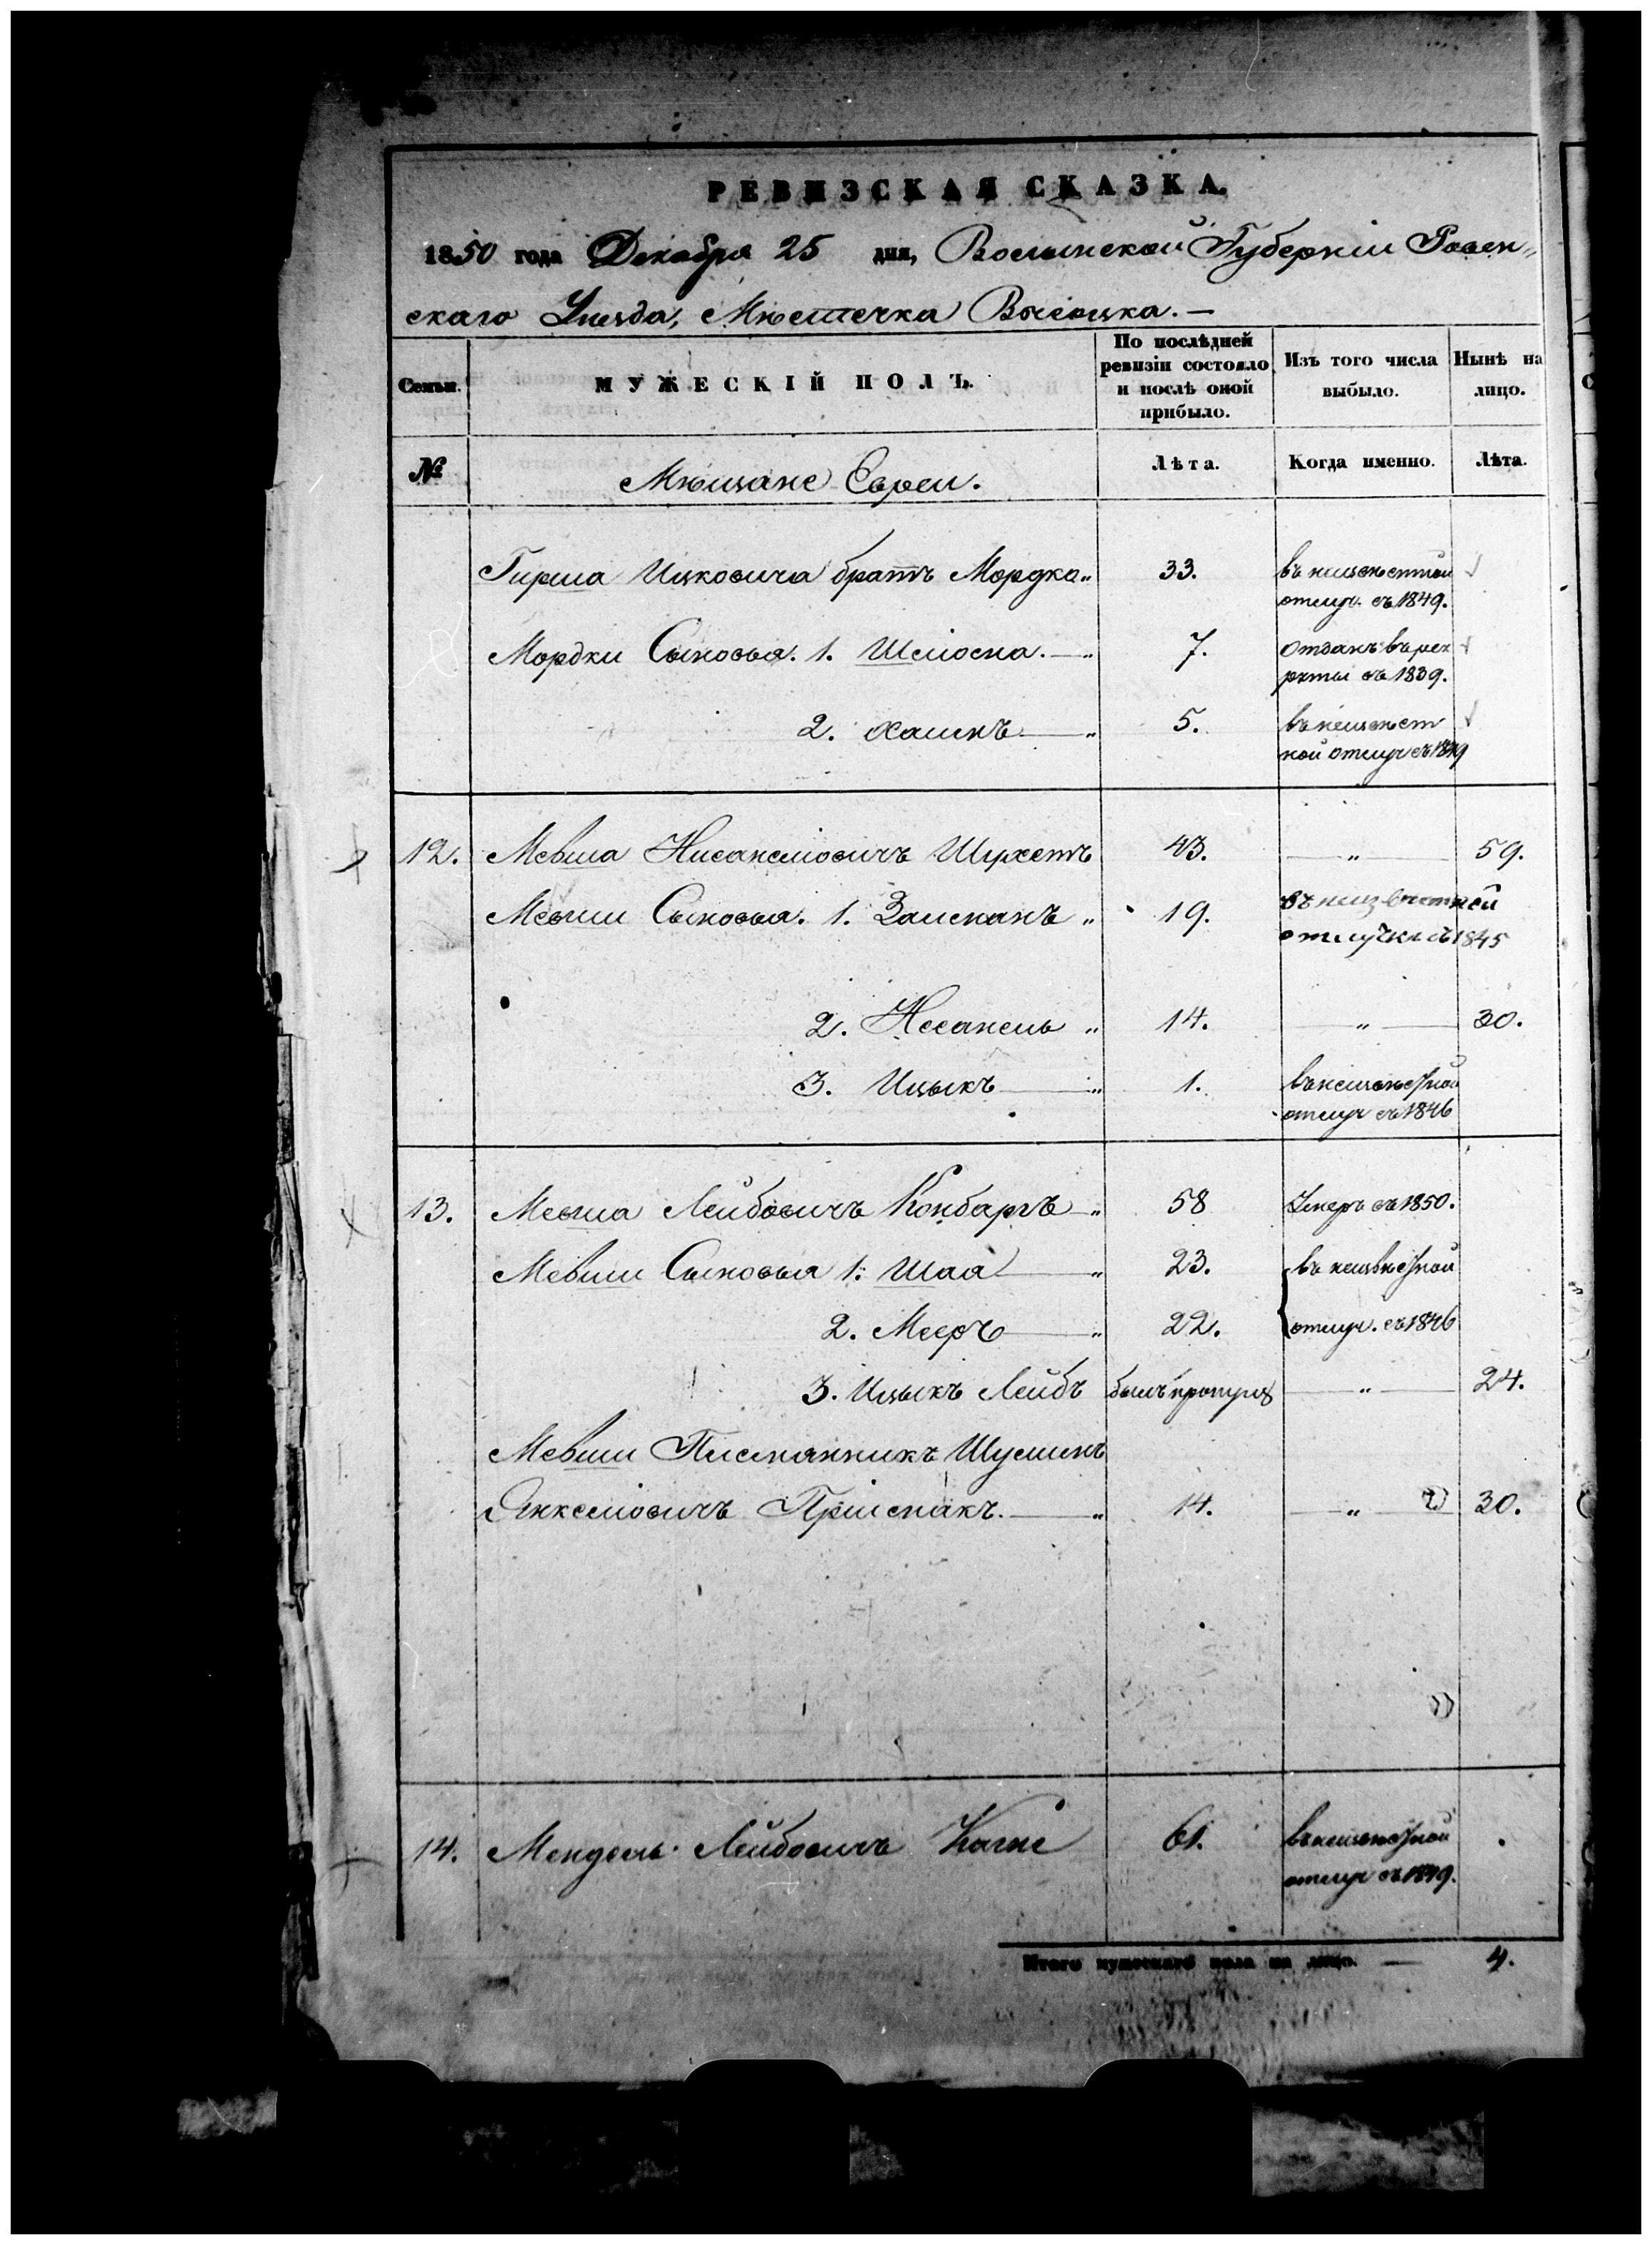 РЕВИЗСКАЯ СКАЗКА.
1850 года Декабря 25 дня, Волынской Губерніи Ровен-
скаго Уѣзда, Мѣстечка
Семьи.
МУЖЕСКІЙ ПОЛЪ.
По послѣдней
ревизіи состояло
и послѣ оной
прибыло.
Изъ того числа
выбыло.
Нынѣ на
лицо.
№
Мѣщане Евреи.
Лѣта.
Когда именно.
Лѣта.
Гирша Ицковича братъ Мордко „ 33. въ неизвѣстной
отлуч. съ 1849.
Мордки Сыновья. 1. Шліома. — „ 7. отданъ въ рек
руты съ 1839.
2. Хаимъ — „ 5. въ неизвѣст
ной отлуч съ 1849
12. Мевша Нисанеліовичъ 43. — „ — 59.
Мевши Сыновья. 1. „ 19. въ неизвѣстной
отлучкѣ съ 1845
2. Несанель „ 14. — „ — 30.
3. Ицыкъ — „ 1. въ неизвѣстной
отлуч съ 1846
13. Мевша Лейбовичъ „ 58 Умеръ съ 1850.
Мевши Сыновья 1. Шаа — „ 23. въ неизвѣстной
2. Мееръ — „ 22. отлуч. съ 1846
3. Ицыкъ Лейбъ былъ пропущ — „ — 24.
Мевши Племянникъ
Янкеліовичъ — „ 14. — „ — 30.
14. Мендель Лейбовичъ 61. въ неизвѣстной
отлуч съ 1849.
Итого мужескаго пола на лицо. — 4.